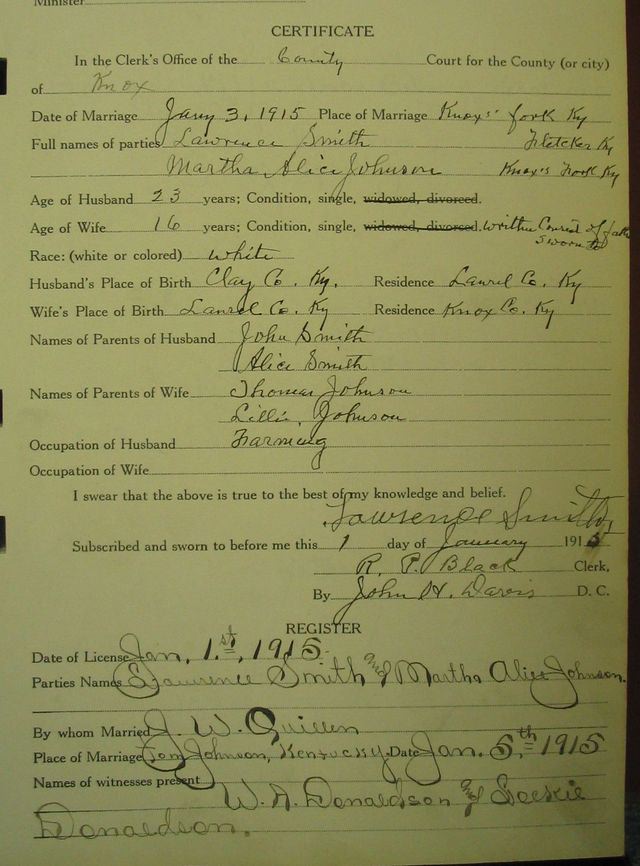 Minister
CERTIFICATE
In the Clerk's Office of the County Court for the County (or city)
of Knox
Date of Marriage Jany 3, 1915 Place of Marriage Knox's fork Ky
Full names of parties Lawrence Smith Fletcher Ky
Martha Alice Johnson Knox's Fork Ky
Age of Husband 23 years; Condition, single, widowed, divorced.
Age of Wife 16 years; Condition, single, widowed, divorced. written Consent of
sworn to
Race: (white or colored) white
Husband's Place of Birth Clay Co. Ky. Residence Laurel Co. Ky
Wife's Place of Birth Laurel Co. Ky Residence Knox Co. Ky
Names of Parents of Husband John Smith
Alice Smith
Names of Parents of Wife Thomas Johnson
Lillie Johnson
Occupation of Husband Farming
Occupation of Wife
I swear that the above is true to the best of my knowledge and belief.
Lawrence Smith
Subscribed and sworn to before me this 1 day of January 1915
R. P. Black Clerk,
By John H. Davis D. C.
REGISTER
Date of License Jan. 1.st, 1915.
Parties Names Lawrence Smith and Martha Alice Johnson.
By whom Married J. W. Quillen
Place of Marriage Tom Johnson, Kentucky. Date Jan. 5.th 1915
Names of witnesses present
W. A. Donaldson and
Donaldson.